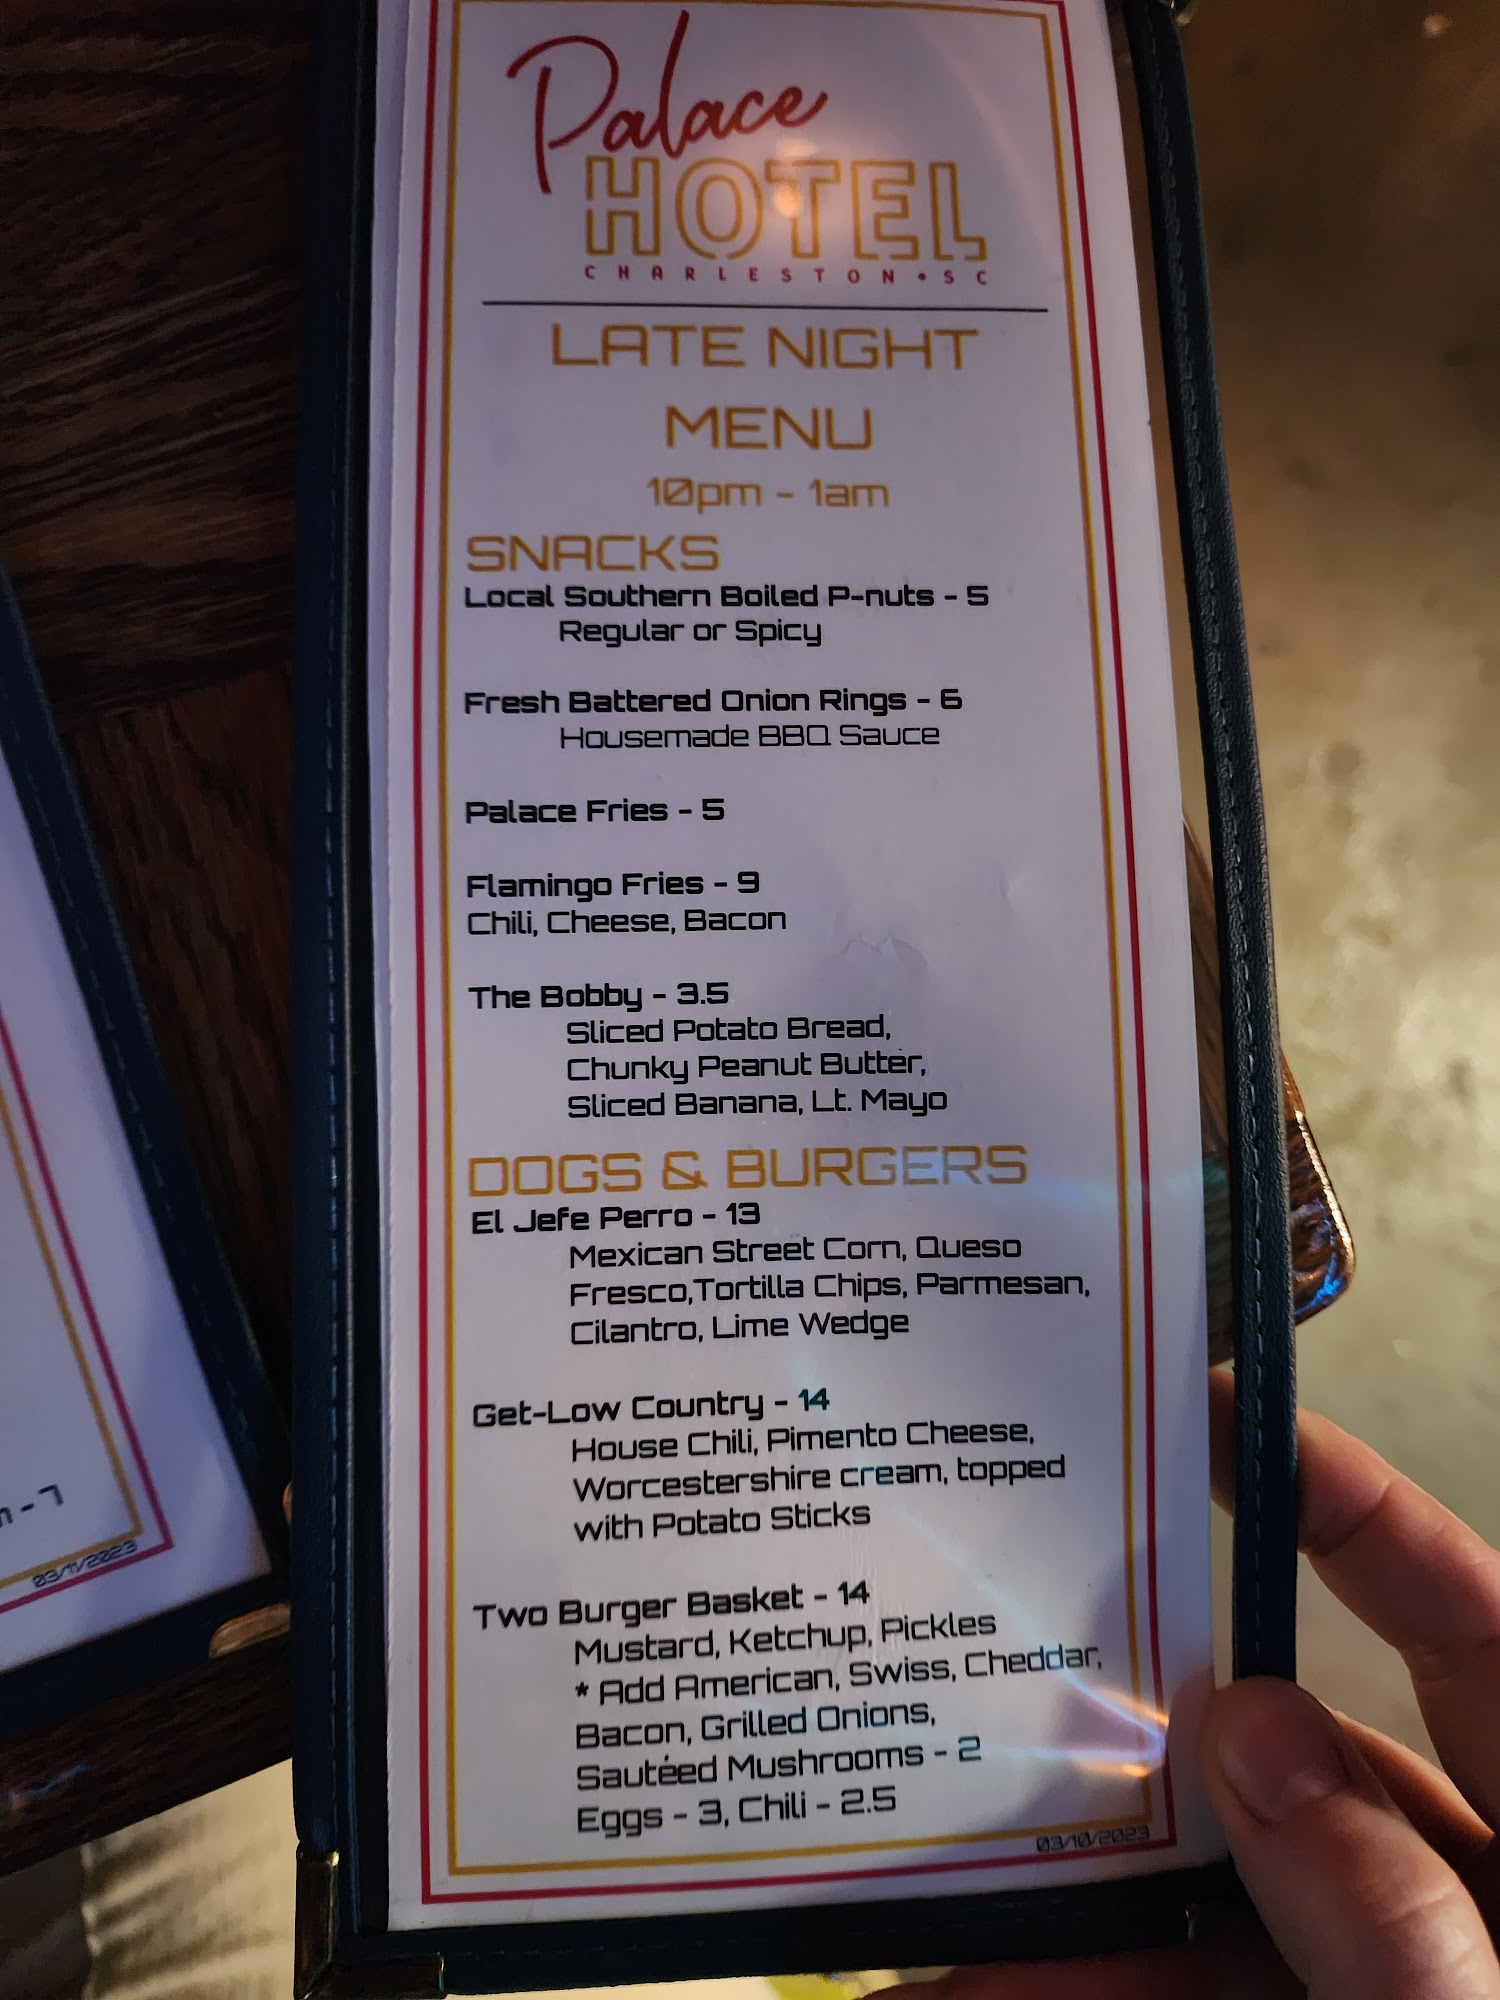 Palace
HOTEL
CHARLESTON • SC
LATE NIGHT
MENU
10pm - 1am
SNACKS
Local Southern Boiled P-nuts - 5
Regular or Spicy
Fresh Battered Onion Rings - 6
Housemade BBQ Sauce
Palace Fries - 5
Flamingo Fries - 9
Chili, Cheese, Bacon
The Bobby - 3.5
Sliced Potato Bread,
Chunky Peanut Butter,
Sliced Banana, Lt. Mayo
DOGS & BURGERS
El Jefe Perro - 13
Mexican Street Corn, Queso
Fresco,Tortilla Chips, Parmesan,
Cilantro, Lime Wedge
Get-Low Country - 14
House Chili, Pimento Cheese,
Worcestershire cream, topped
with Potato Sticks
Two Burger Basket - 14
Mustard, Ketchup, Pickles
* Add American, Swiss, Cheddar,
Bacon, Grilled Onions,
Sautéed Mushrooms - 2
Eggs - 3, Chili - 2.5
03/10/2023
- 7
03/11/2023